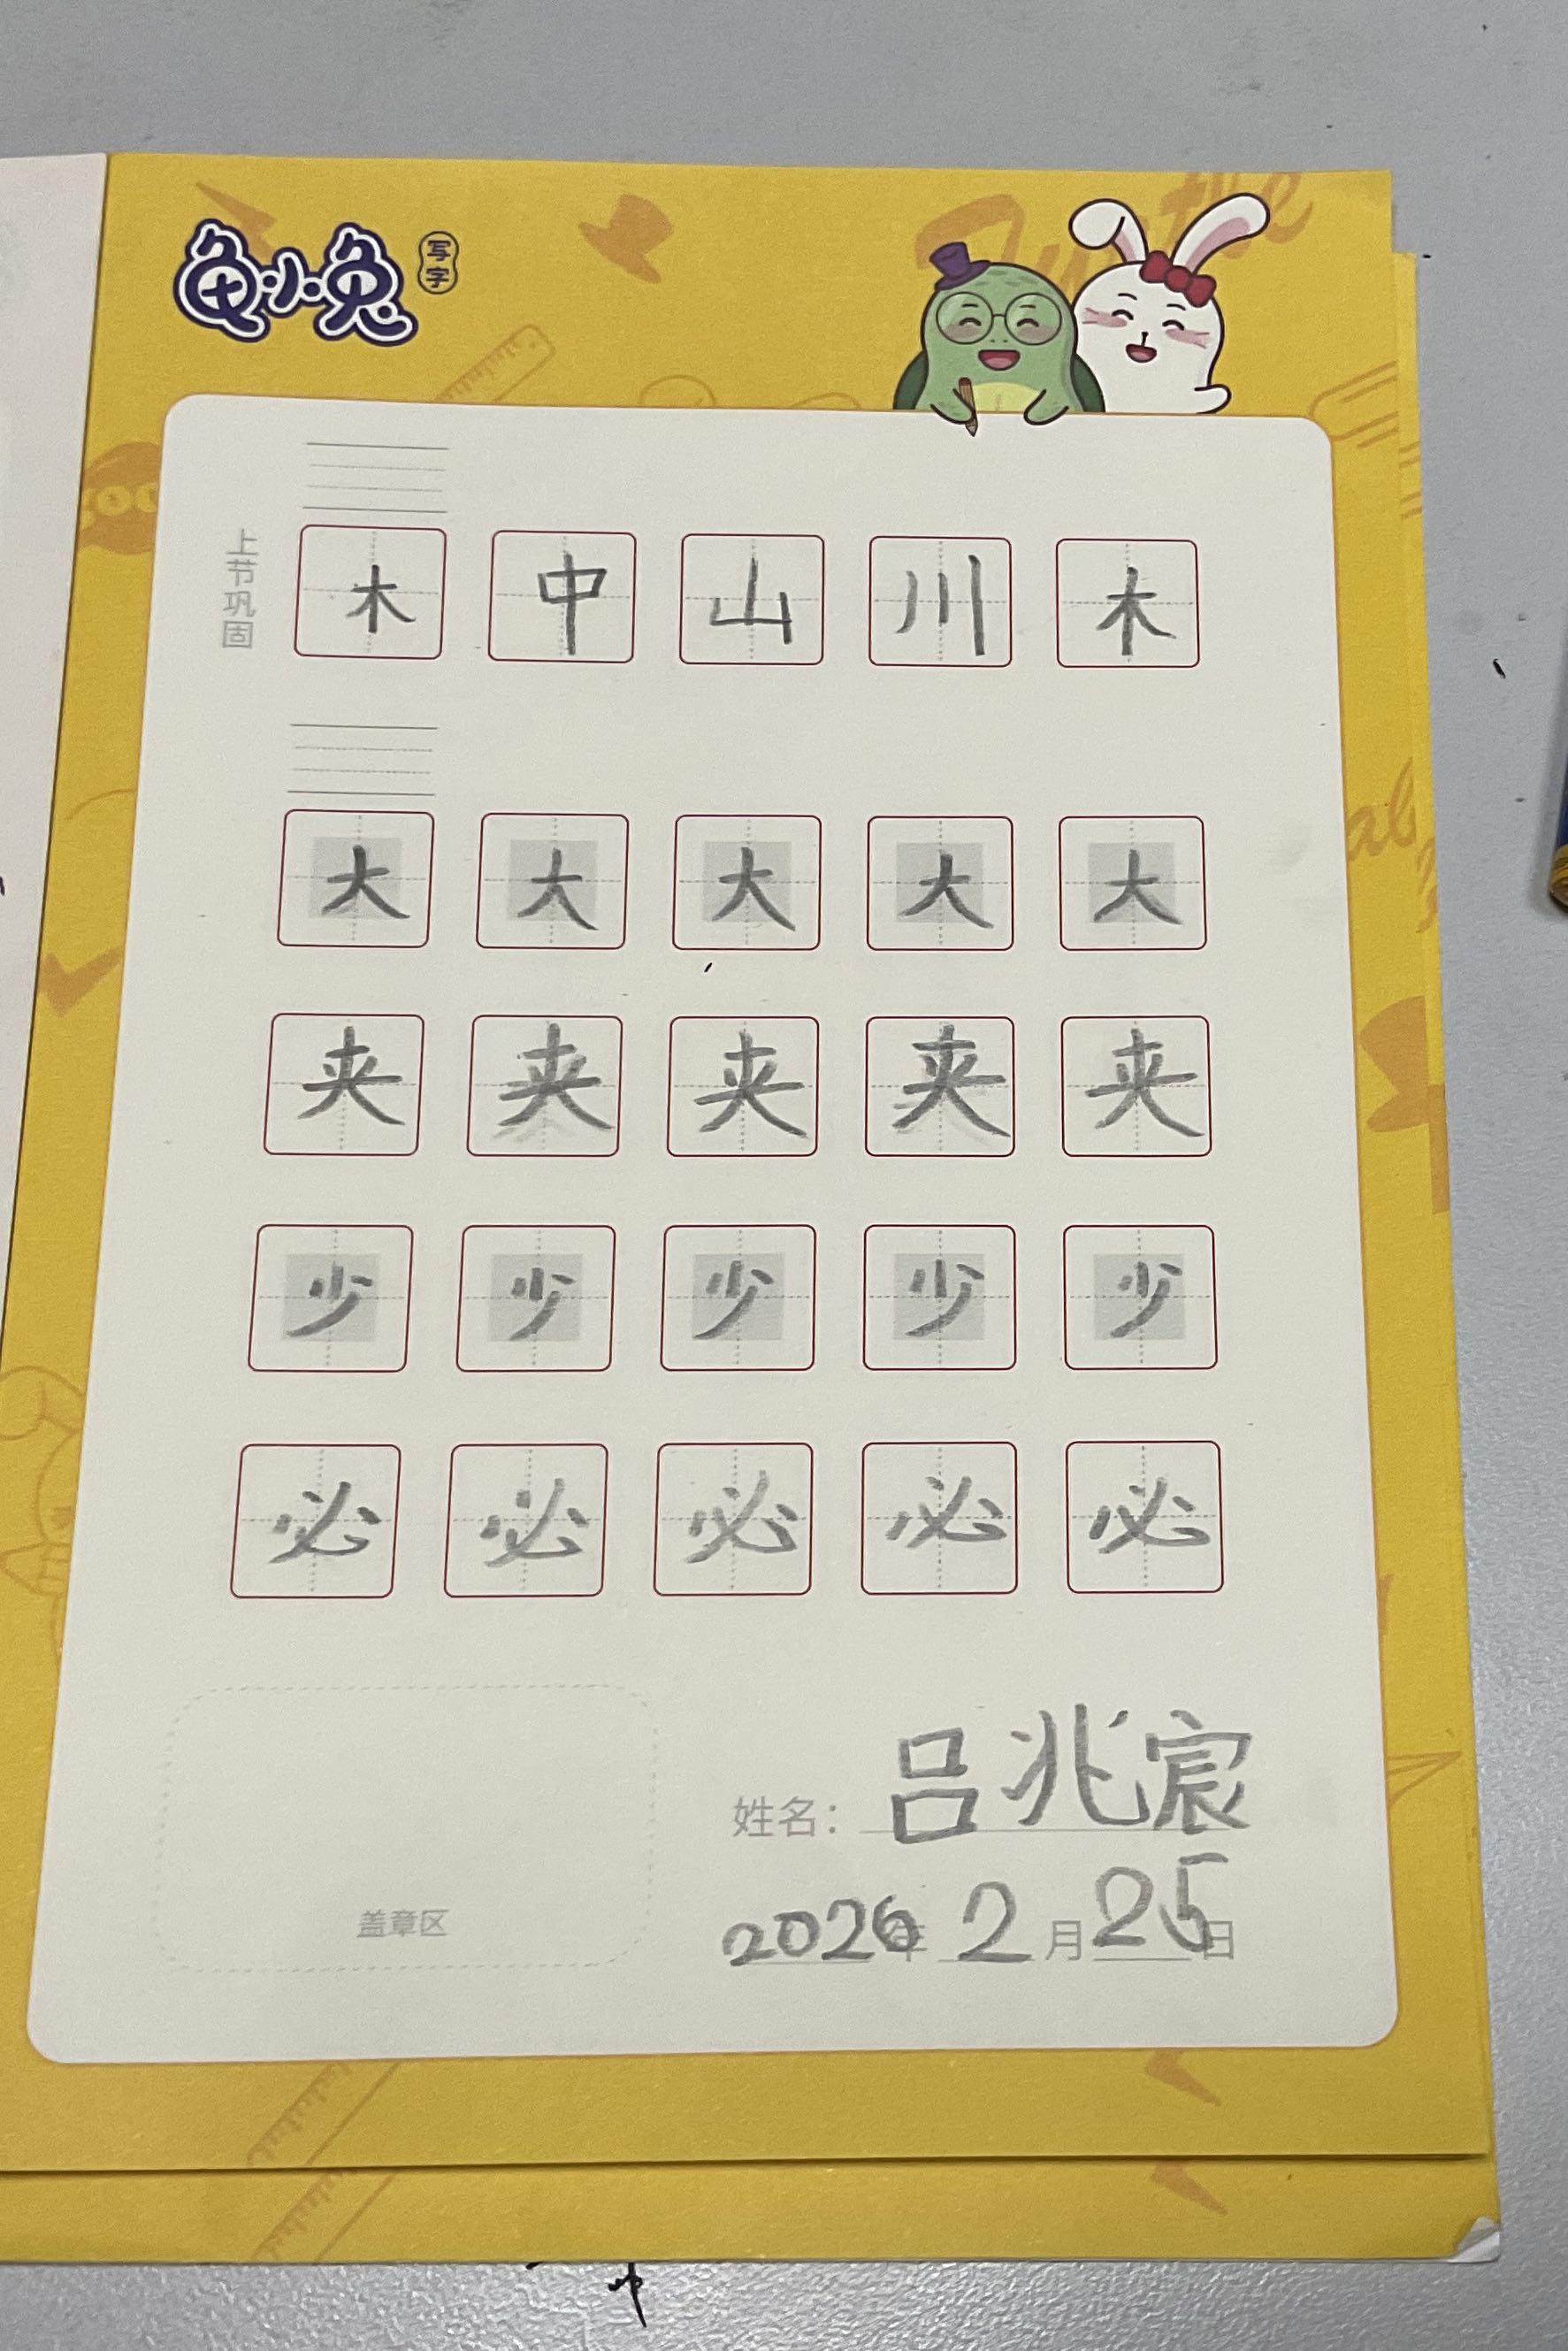 龟小兔 写字
上节巩固
木 中 山 川 木
大 大 大 大 大
夹 夹 夹 夹 夹
少 少 少 少 少
必 必 必 必 必
姓名: 吕兆宸
盖章区
2026年 2月25日